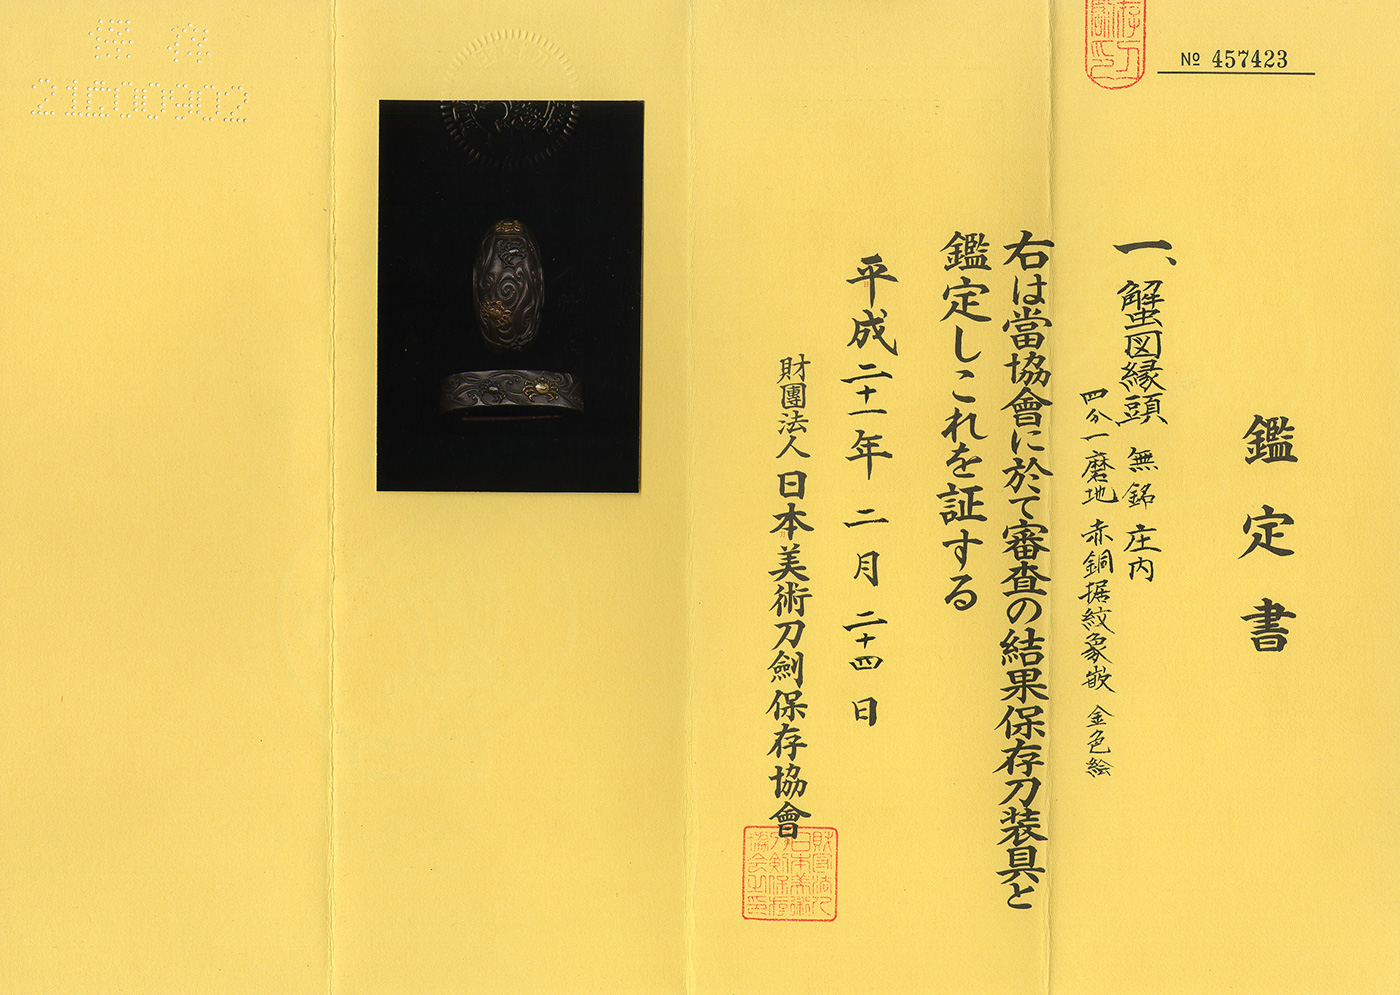 No 457423
鑑定書
一、蟹図縁頭 無銘 庄内
四分一磨地 赤銅据紋象嵌 金色絵
右は當協會に於て審査の結果保存刀装具と
鑑定しこれを証する
平成二十一年 二月 二十四日
財團法人日本美術刀劍保存協會
保存
21E00902